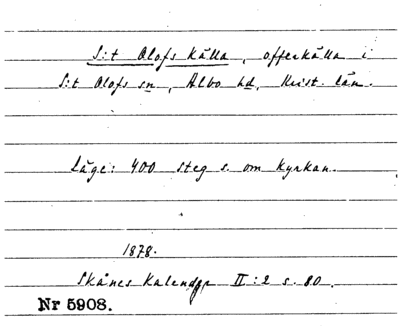 S:t Olofs källa, offerkälla i
S:t Olofs sn, Albo hd, Krist. län.
Läge: 400 steg s. om kyrkan.
1878.
Skånes Kalender II:2 s. 80.
Nr 5908.